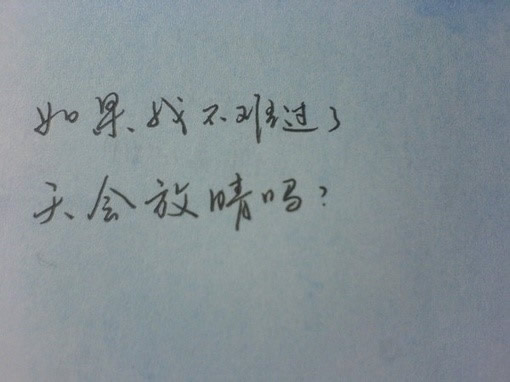 如果、我不难过了
天会放晴吗?